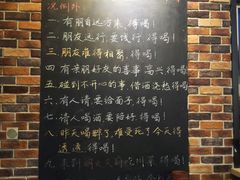 况例外
一. 有朋自远方来. 得喝!
二. 朋友远行. 莫伐行. 得喝!
三. 朋友难得相聚. 得喝!
四. 有亲朋好友的喜事 高兴 得喝!
五. 碰到不开心的事. 借酒浇愁得喝!
六. 有人请要给面子. 得喝!
七. 有人喝酒要陪好. 得喝!
八. 昨天喝醉了. 难受死了今天得
透透. 得喝!
九. 来到